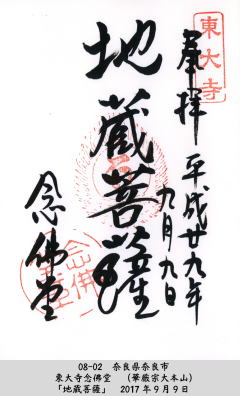 東大寺
奉拝 平成廿九年
九月九日
地蔵菩薩
念佛堂
08-02 奈良県奈良市
東大寺念佛堂 (華厳宗大本山)
「地蔵菩薩」 2017年9月9日